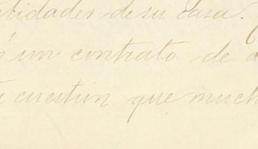 de su casa.
un contrato de
cuestion que much